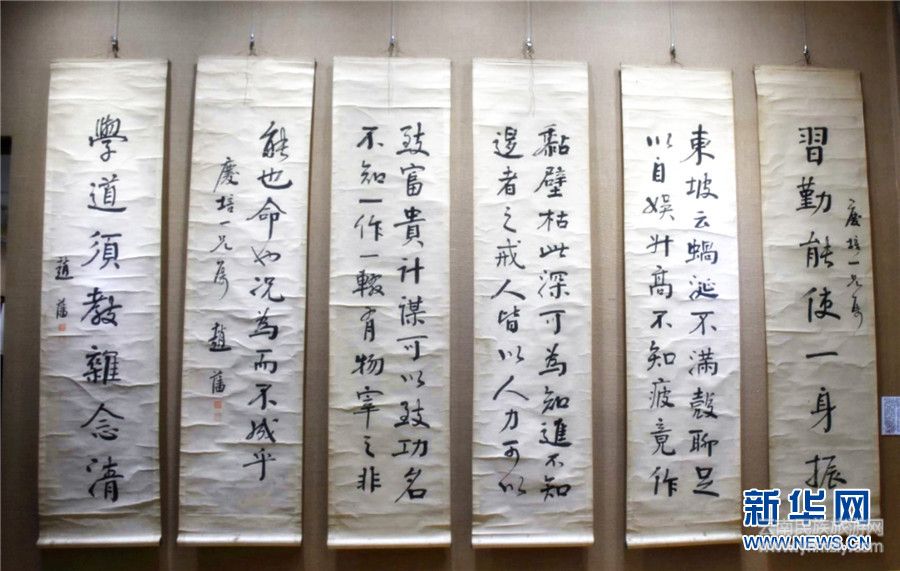 慶培一兄屬
習勤能使一身振
東坡云蝸涎不滿殼聊足
以自娛升高不知疲竟作
黏壁枯此深可為知進不知
退者之戒人皆以人力可以
致富貴計謀可以致功名
不知一作一輟有物宰之非
能也命也况為而不成乎
慶培一兄屬
趙藩
學道須教雜念清
趙藩
新华网
云南民族旅游网
WWW.NEWS.CN